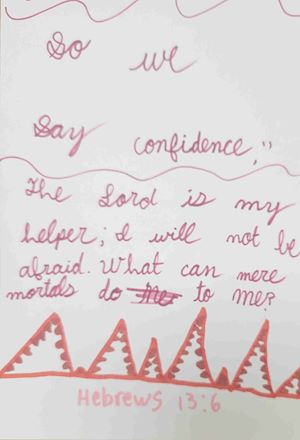 So we
Say confidence,"
The Lord is my
helper; I will not be
afraid. What can mere
mortals do me to me?
Hebrews 13:6